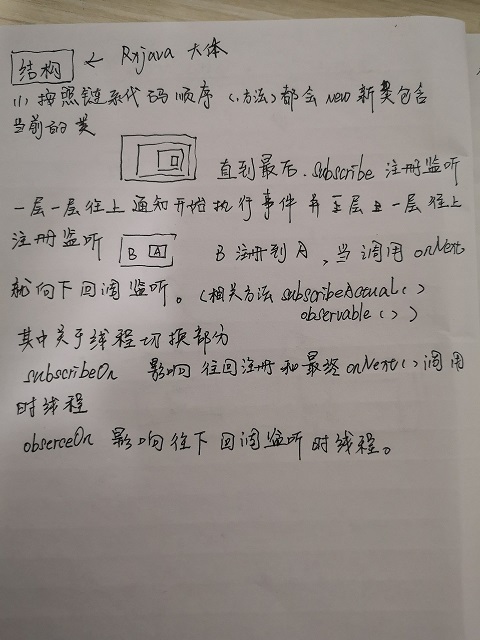 结构 ← Rxjava 大体
(1) 按照链条代码顺序 (.方法) 都会 new 新类包含
当前的类
直到最后 .subscribe 注册监听
一层一层往上通知开始执行事件 并 一层往上
注册监听 B A B 注册到 A, 当调用 onNext
就向下回调监听。(相关方法 subscribeActual()
observable())
其中关于线程切换部分
subscribeOn 影响往回注册和最终 onNext() 调用
时线程
obserceOn 影响往下回调监听时线程。